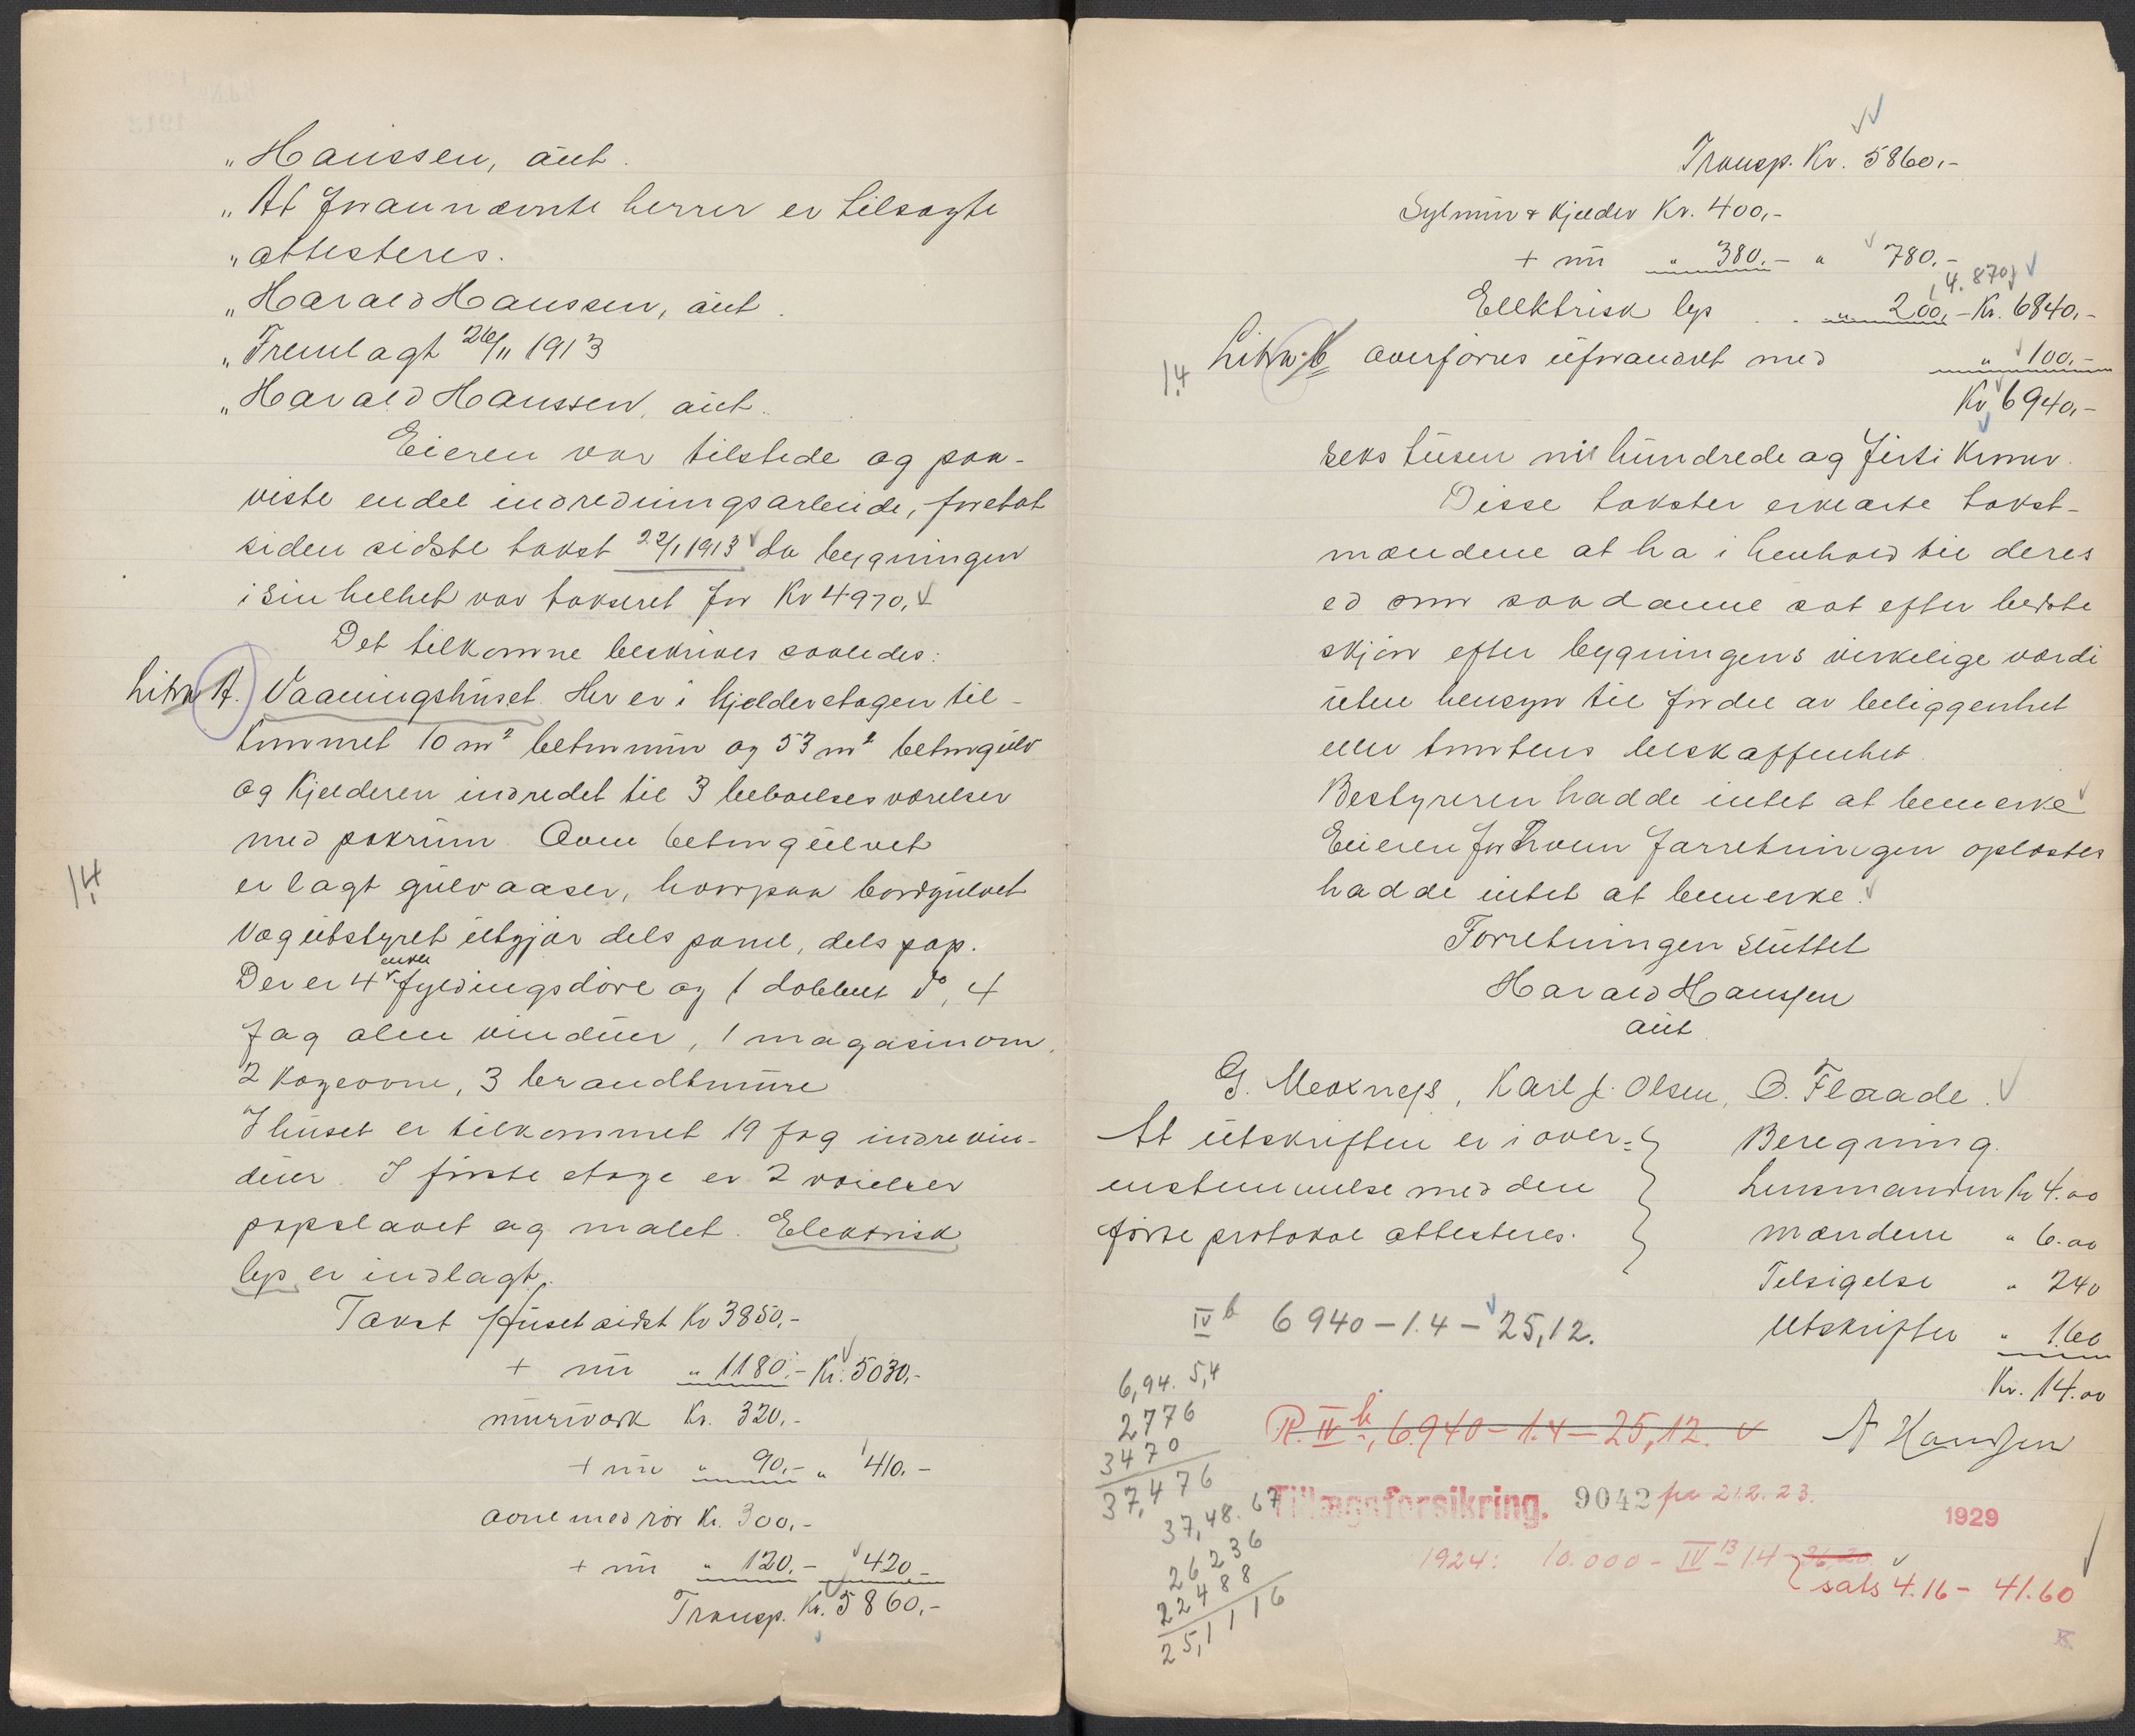 „Hanssen, aut.
„At frannævnte herrer er tilsagte
„attesteres.
„Harald Hanssen, aut.
„Fremlagt 26/11 1913
„Harald Hanssen, aut.
Eieren var tilstede og paa-
viste endel indredningsarbeide, foretat
siden sidste takst 22/1 1913 da bygningen
i sin helhet var taksert for Kr 4970,-
Det tilkomne beskrives saaledes:
Litra A. Vaaningshuset. Her er i kjelderetagen til-
kommet 10 m² betonmur og 53 m² betongulv
og Kjelderen indredet til 3 beboelsesværelser
med pakrum. Over betongulvet
1.4
er lagt gulvaaser, hvorpaa bordgulvet
Vægutstyret utgjør dels panel, dels pap.
Der er 4 enkle fyldingsdøre og 1 dobbelt do, 4
fag alm vinduer, 1 magasinovn,
2 kogeovne, 3 brandtmure
I huset er tilkommet 19 fag indrevin-
duer. I første etage er 2 værelser
papslaaet og malet. Elektrisk
lys er indlagt.
Takst Huset sidst Kr 3850,-
+ nu „ 1180,- Kr. 5030,-
murverk Kr. 320,-
+ nu „ 90,- „ 410,-
ovne med rør Kr. 300,-
+ nu „ 120,- 420,-
Transp. Kr. 5860,-
Transp. Kr. 5860,-
Sylmur & kjelder Kr. 400,-
+ nu „ 380,- „ 780,-
4.870,
Ellektrisk lys . . „ 200,- Kr. 6840,-
1.4
Litra b overføres uforandret med „ 100,-
Kr 6940,-
seks tusen nihundrede og førti Kroner.
Disse takster erklærte takst-
mændene at ha i henhold til deres
ed som saadanne sat efter bedste
skjøn efter bygningens virkelige værdi
uten hensyn til fordel av beliggenhet
eller tomtens beskaffenhet.
Bestyreren hadde intet at bemerke
Eieren for hvem forretningen oplæstes
hadde intet at bemerke.
Forretningen sluttet
Harald Hanssen
aut
Karl J. Olsen, O. Flaade.
At utskriften er i over-
enstemmelse med den
førte protokol attesteres.
Beregning.
Lensmanden Kr 4.00
mændene „ 6.00
Tilsigelse „ 240
Utskrifter „ 1.60
Kr. 14.00
IV b 6940 - 1.4 - 25,12.
6,94. 5,4
2776
3470
37,476
37,48. 67
26236
22488
25,1116
R. IV b, 6.940 - 1.4 - 25,12.
A Hanssen
Tillægsforsikring. 9042 fra 21.2.23.
1929
1924: 10.000 - IV 13 1.4 36,20
sats 4.16 - 41.60
K.